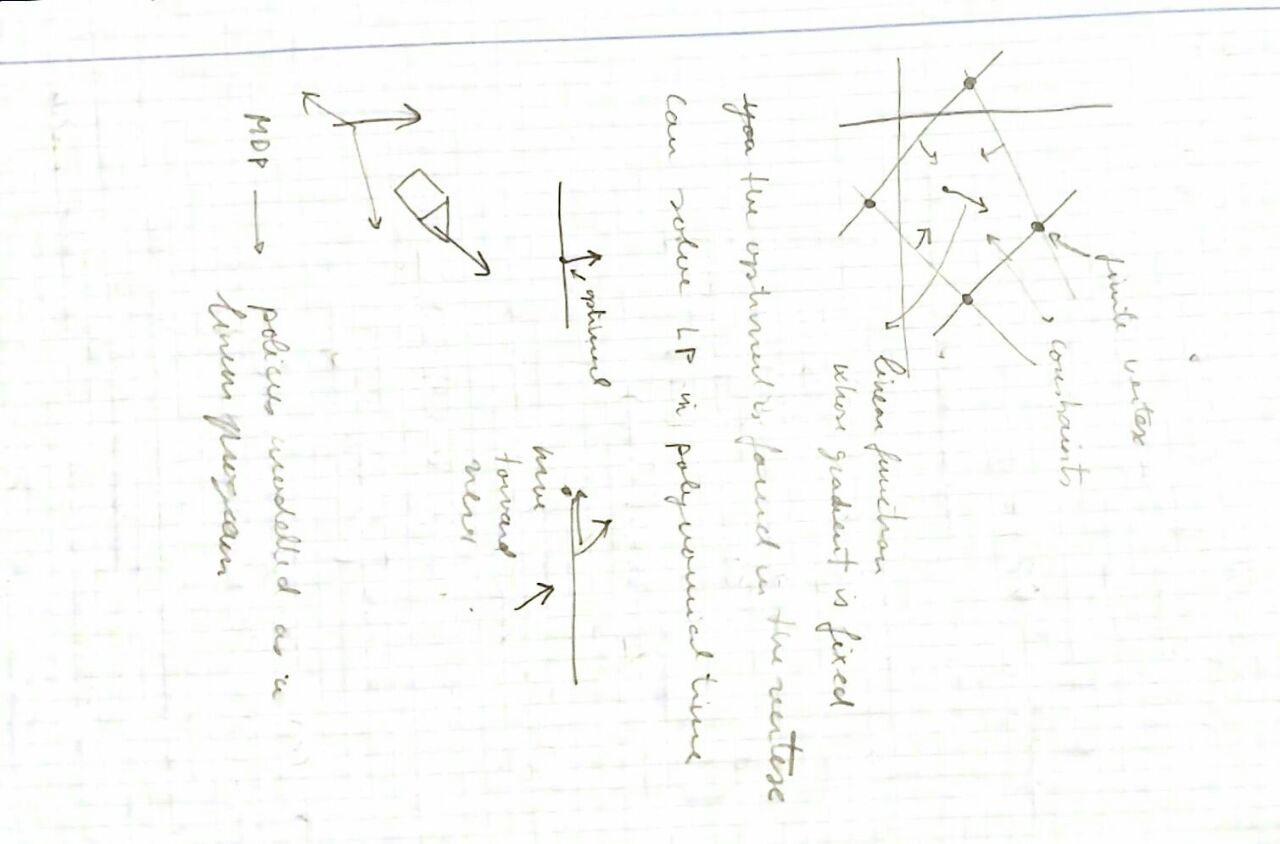 finite vertex
constraints
linear function
whose gradient is fixed
you the optimal is found in the vertex
can solve LP in polynomial time
optimal
move
toward
MDP → policies modelled as a
linear program